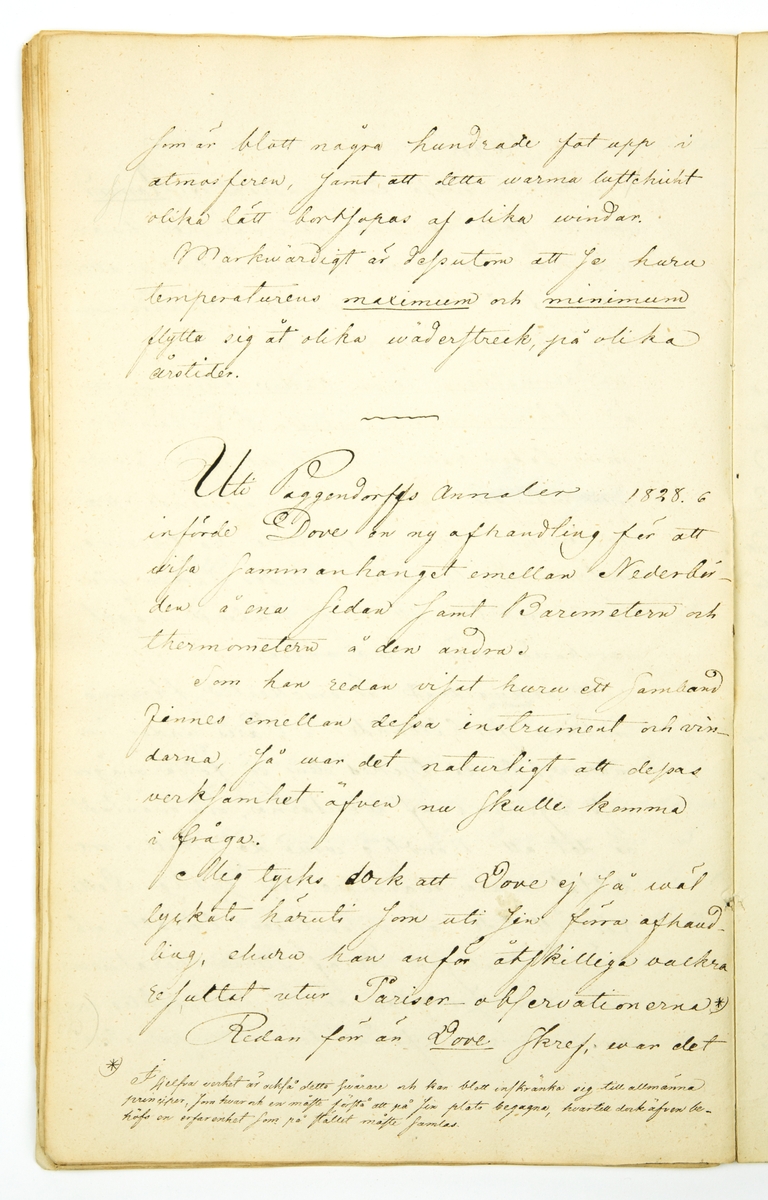 som är blott några hundrade fot upp i
atmosferen, samt att detta warma luftchicht
olika lätt bortsopas af olika windar.
Markwärdigt är dessutom att se huru
temperaturens maximum och minimum
flytta sig åt olika wäderstreck, på olika
årstider.
Uti Poggendorffs Annaler 1828. 6
införde Dove en ny afhandling för att
visa sammanhanget emellan Nederbör-
den å ena sidan samt Barometern och
thermometern å den andra.
Som han redan visat huru ett samband
finnes emellan dessa instrument och vin-
darna, så war det naturligt att dessas
verksamhet äfven nu skulle komma
i fråga.
Mig tycks dock att Dove ej så wäl
lyckats häruti som uti sin förra afhand-
ling, ehuru han anför åtskilliga vackra
resultat utur Pariser observationerna *)
Redan för än Dove skref, war det
*) I sjelfva verket är också detta svårare och kan blott inskränka sig till allmänna
principer, som hwar och en måste förstå att på sin plats begagna, hvartill dock äfven be-
höfs en erfarenhet som på stället måste samlas.